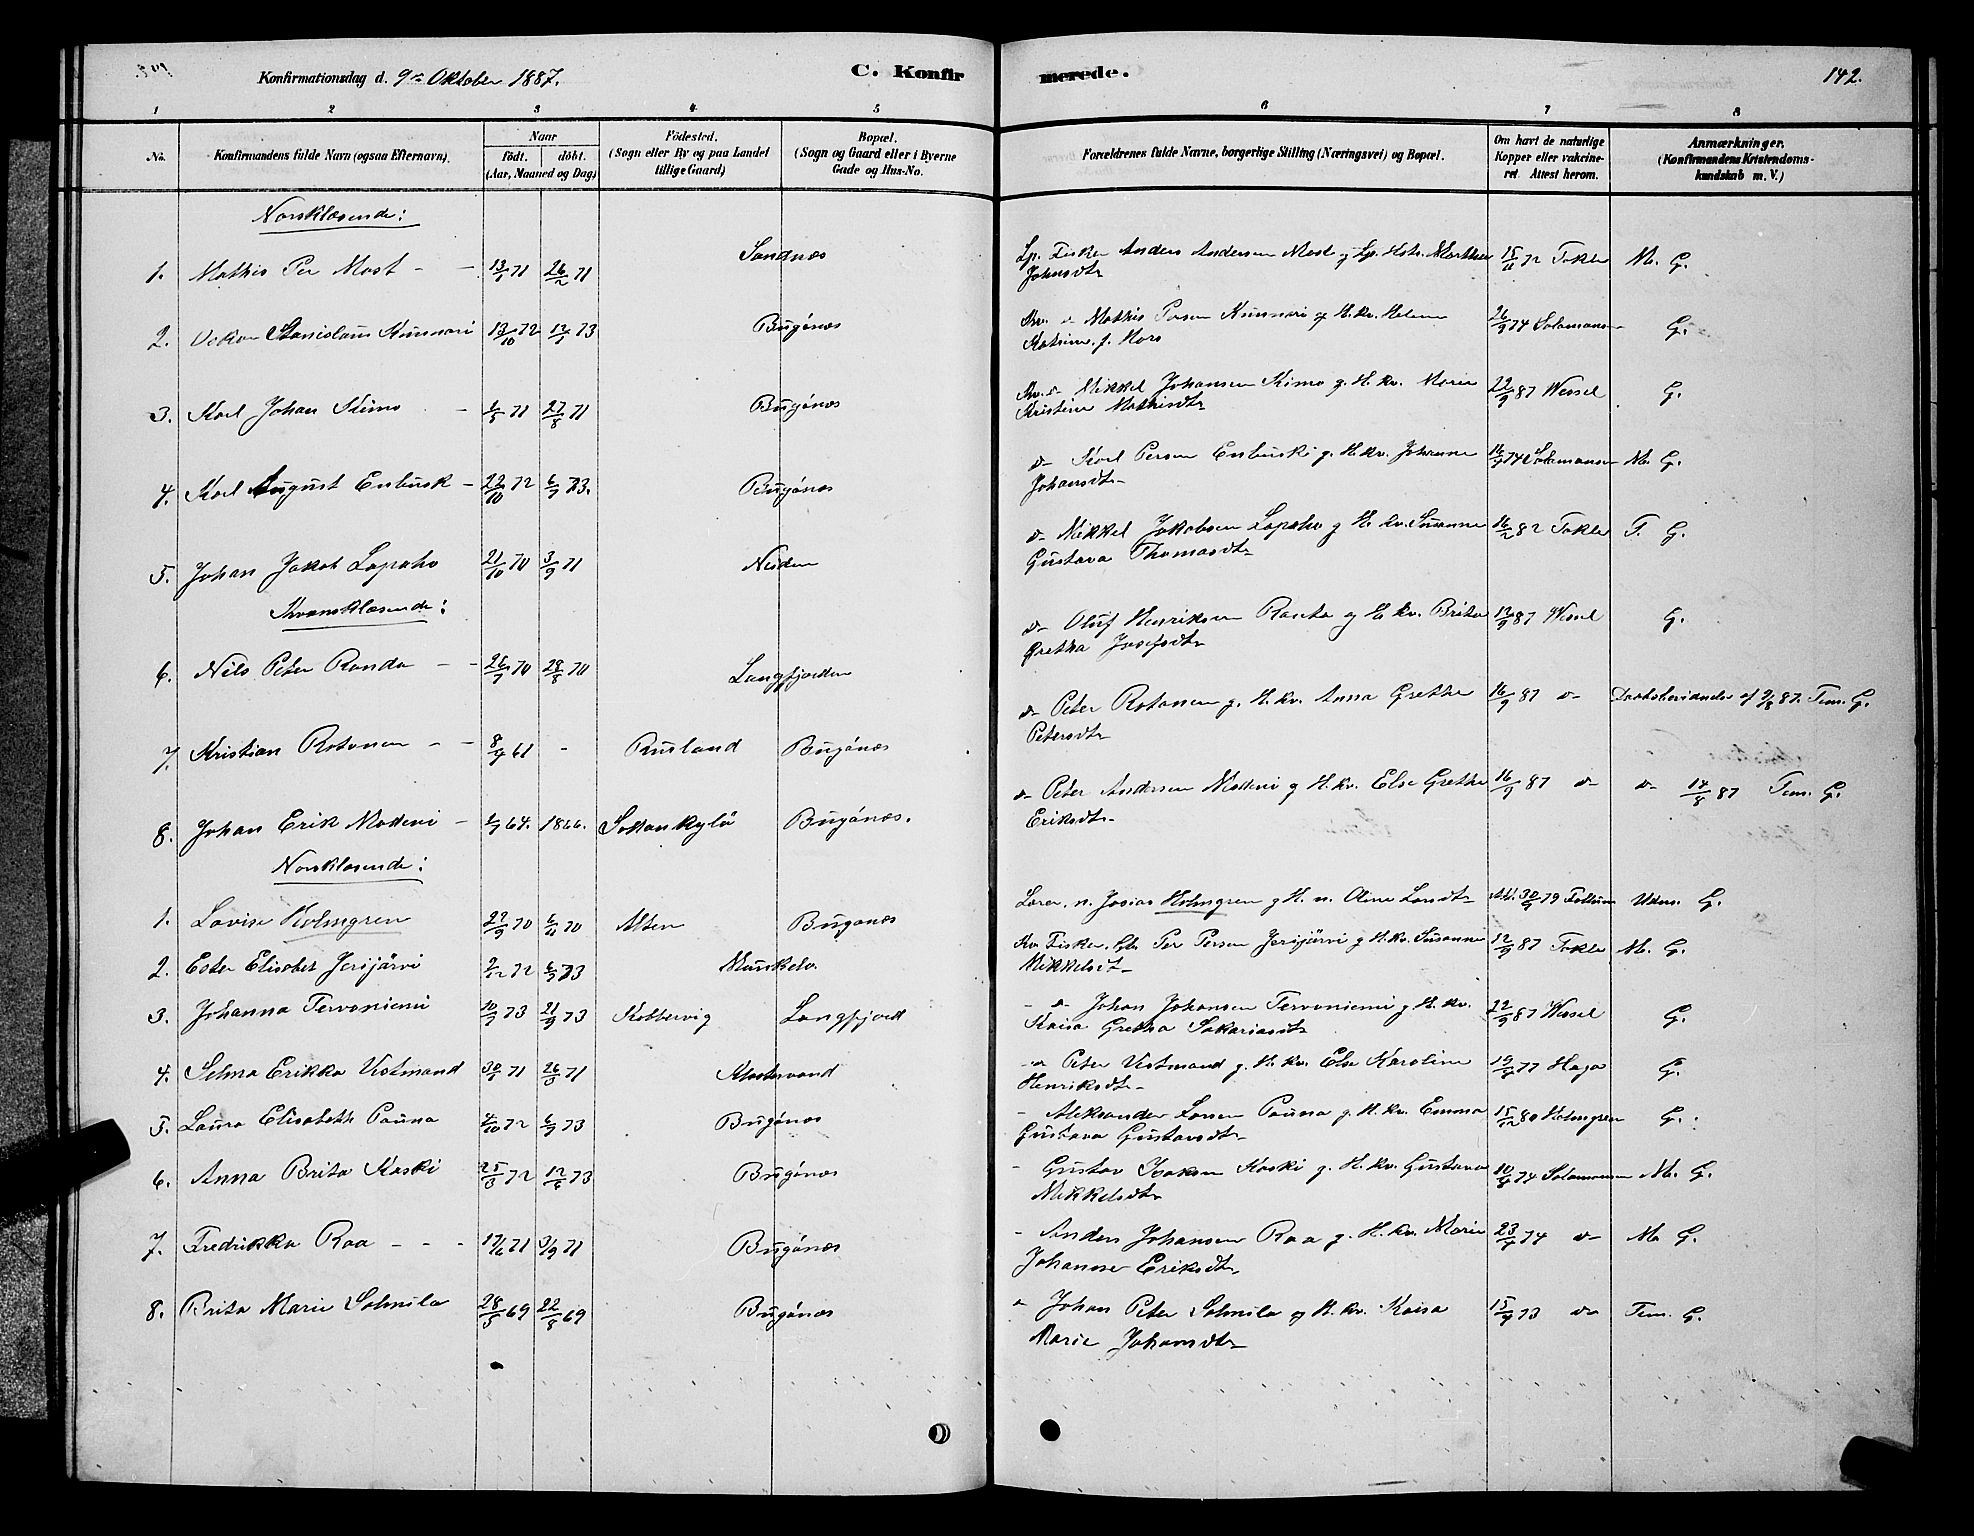 Konfirmationsdag d. 9de Oktober 1887.
C. Konfirmerede.
142.
1 2 3 4 5 6 7 8
No.
Konfirmandens fulde Navn (ogsaa Efternavn).
Naar
født. døbt.
(Aar, Maaned og Dag)
Fødested.
(Sogn eller By og paa Landet
tillige Gaard)
Bopæl.
(Sogn og Gaard eller i Byerne
Gade og Hus-No.
Forældrenes fulde Navne, borgerlige Stilling (Næringsvei) og Bopæl.
Om havt de naturlige
Kopper eller vakcine-
ret Attest herom.
Anmærkninger.
(Konfirmandens Kristendoms-
kundskab m. V.)
Norsklæsende:
1. Mathis Per Most - - 26/2 71 Sandnæs Lp. Fisker Anders Andersen Most g Lp. Hstr. Marthe
Johnsdtr 72 Takle M. G.
2. Stanislaus Kunnari 13/10 72 73 Bugönæs Kv. Mathis Persen Kunnari og H. kv. Helene
Katrine f. Hors 26/9 74 Solomonsen G.
3. Karl Johan Kimo - 71 27/8 71 Bugönæs Kv. Mikkel Johansen Kimo g. H. kv. Marie
Kristine Mathisdtr 22/9 87 Wessel G.
4. Karl August Enbusk - 22/10 72 73. Bugönæs Karl Persen Enbuski g. H. kv. Johanne
Johansdtr 74 Solomonsen M. G.
5. Johan Jakob Lapaho 21/10 70 3/9 71 Neiden Mikkel Jakobsen Lapaho g H. kv. Susanne
Gustava Thomasdtr 16/2 82 Takle T. G.
Kvænsklæsende:
6. Nils Peter Ranta - - 70 28/8 70 Langfjorden Oluf Henriksen Ranta og H. kv. Brita
Gretha Josefsdtr 87 Wessel G.
7. Kristian Rotonen - - 61 - Rusland Bugönæs Peter Rotonen g. H. kv. Anna Grethe
Petersdtr 16/9 87 Daabsbevidnelse af 87. Tem. G.
8. Johan Erik Madeni - 64. 1866. Sodankylä Bugönæs. Peter Andersen Madeni g H. kv. Else Grethe
Eriksdtr 16/9 87 14/8 87 Tem. G.
Norsklæsende:
1. Lovise Holmgren 22/9 70 70 Alten Bugönæs Lærer, n. Josias Holmgren g H. n. Oline Larsdtr 79 Udm. G.
2. Ester Elisabet Jerijärvi 72 73 Munkelv. Kv Fisker. Per Persen Jerijärvi g H. kv. Susanne
Mikkelsdt 12/9 87 Takle M. G.
3. Johanna Tervoniemi 73 21/9 73 Kobbervig Langfjord Johan Johansen Tervoniemi g H. kv.
Kaisa Gretha Sakariasdtr 22/9 87 Wessel G.
4. Selma Erikka Vestmand 71 71 Klostervand Peter Vestmand g. H. kv. Else Karoline
Henriksdtr 77 Haga G.
5. Laura Elisabeth Pauna 72 73 Bugönæs Aleksander Larsen Pauna g. H. kv. Emma
Gustava Gustavsdtr 15/12 80 Holmgren G.
6. Anna Brita Kaski 72 73 Bugönæs Gustav Isaksen Kaski g. H. kv. Gustava
Mikkelsdtr 74 Solomonsen M. G.
7. Fredrikka Raa - - - 71 71 Bugönæs Anders Johansen Raa g. H. kv. Marie
Johanne Eriksdtr 74 M. G.
8. Brita Marie Salmila 69 22/8 69 Bugönæs Johan Peter Salmila og H. kv. Kaisa
Marie Johansdtr 73 Tem. G.